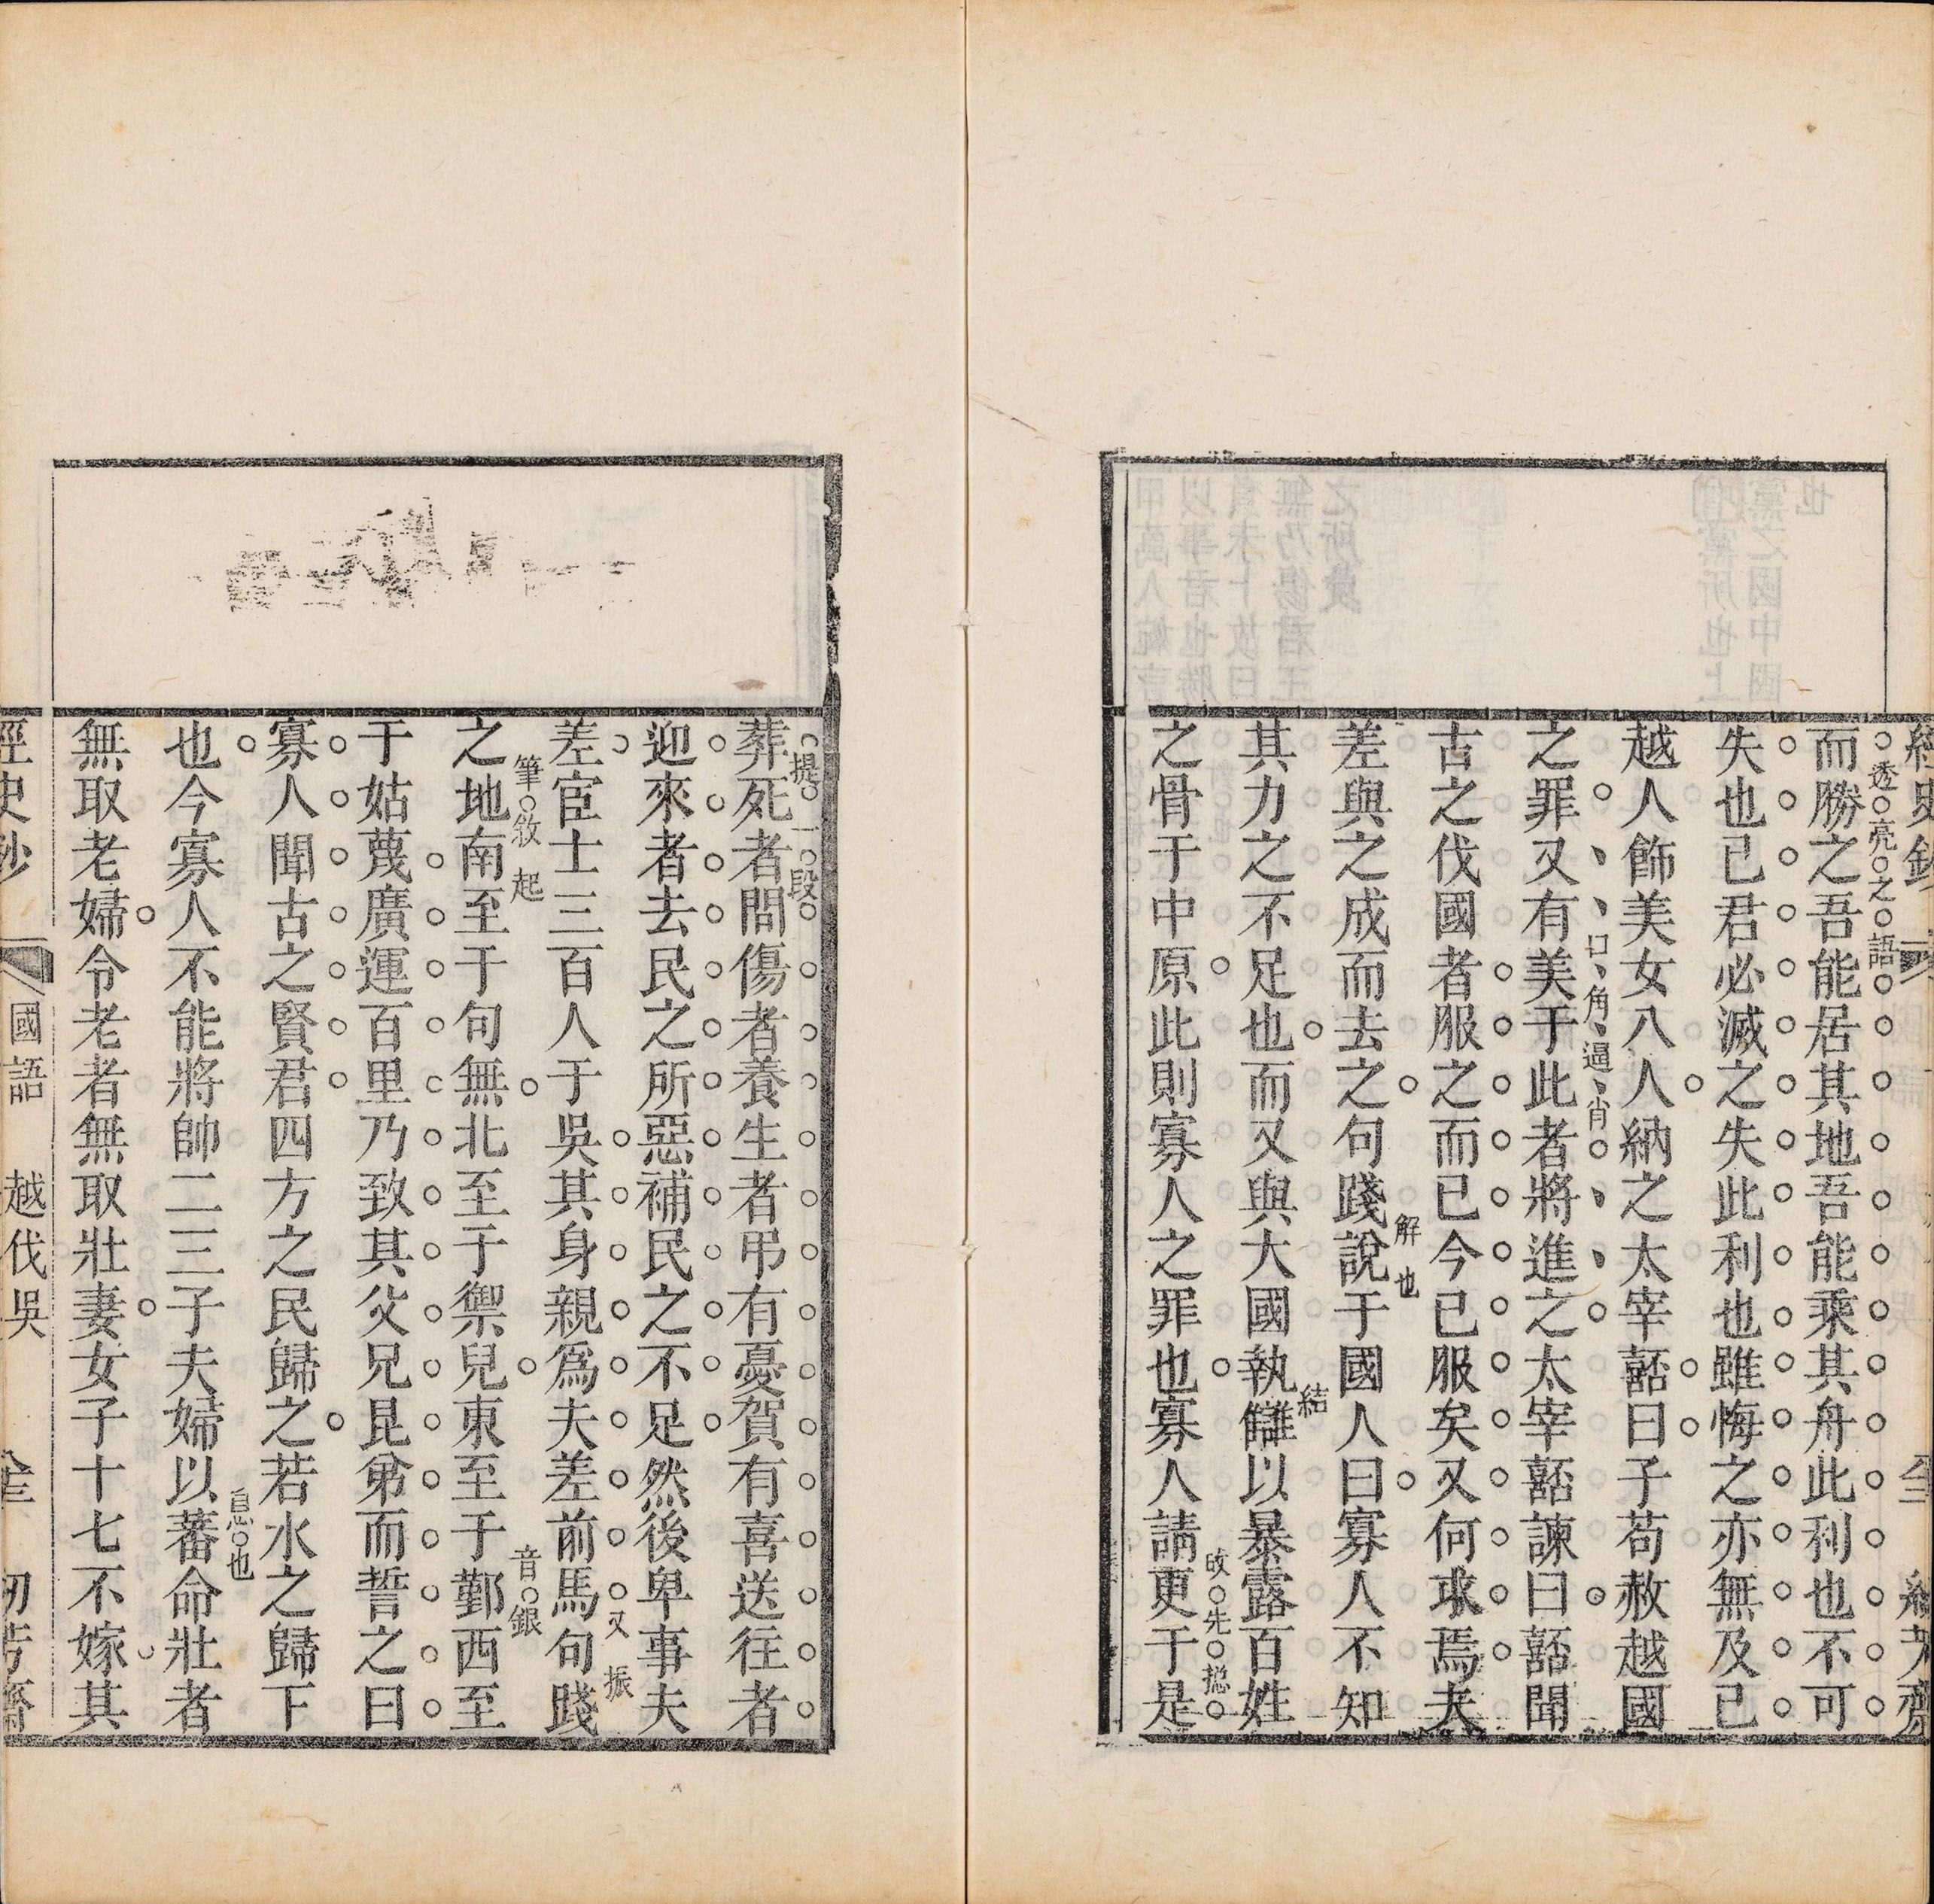 而勝之吾能居其地吾能乘其舟此利也不可
透亮之語
失也已君必滅之失此利也雖悔之亦無及已
越人飾美女八人納之太宰嚭曰子苟赦越國
之罪又有美于此者將進之太宰嚭諫曰嚭聞
口角逼肖
古之伐國者服之而已今已服矣又何求焉夫
差與之成而去之句踐說于國人曰寡人不知
解也
其力之不足也而又與大國執讎以暴露百姓
結
之骨于中原此則寡人之罪也寡人請更于是
先揔
葬死者問傷者養生者弔有憂賀有喜送往者
提一段
迎來者去民之所惡補民之不足然後卑事夫
差宦士三百人于吳其身親爲夫差前馬句踐
又振
之地南至于句無北至于禦兒東至于鄞西至
筆敘起
音銀
于姑蔑廣運百里乃致其父兄昆弟而誓之曰
寡人聞古之賢君四方之民歸之若水之歸下
也今寡人不能將帥二三子夫婦以蕃命壯者
息也
無取老婦令老者無取壯妻女子十七不嫁其
國語 越伐吳